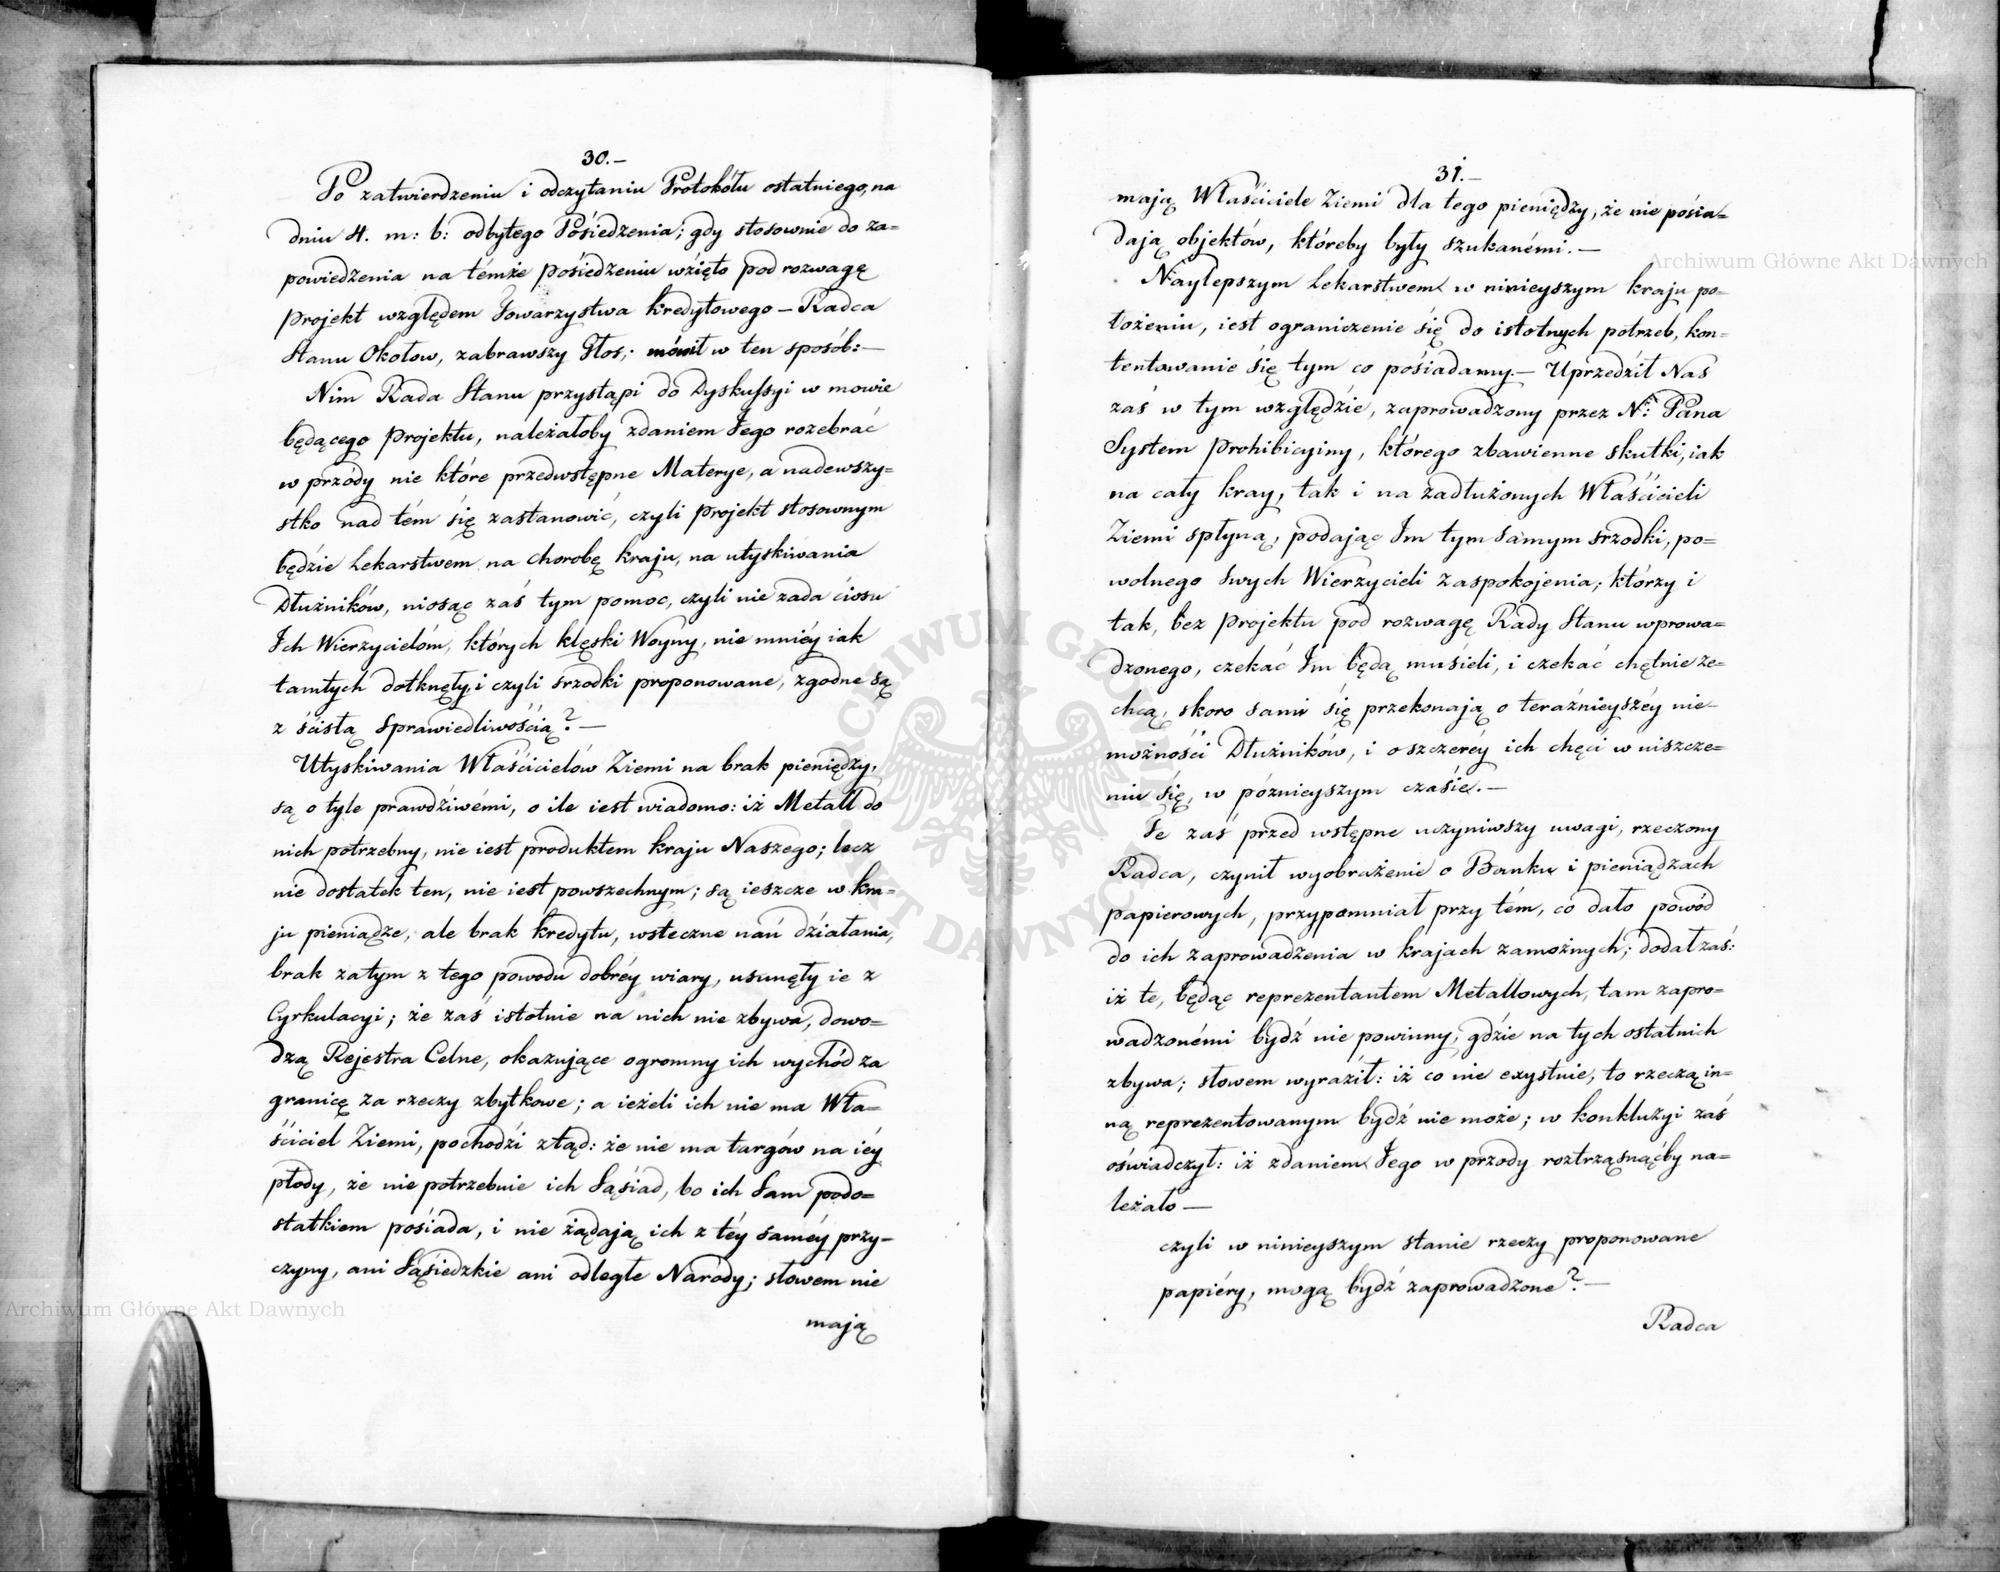 30.—
Po zatwierdzeniu i odczytaniu Protokółu ostatniego, na
dniu 4. m: b: odbytego Pósiedzenia; gdy stosownie do za=
powiedzenia na témże pósiedzeniu wzięto pod rozwagę
projekt względem Towarzystwa kredytowego — Radca
Stanu Okołow, zabrawszy Głos; mówił w ten sposób:—
Nim Rada Stanu przystąpi do Dyskussyi w mowie
będącego projektu, należałoby zdaniem Jego rozebrać
w przódy nie które przedwstępne Materye, a nadewszy=
stko nad tém się zastanowić, czyli projekt stosownym
będzie Lekarstwem na chorobę kraju, na utyskiwania
Dłużników, niosąc zaś tym pomoc, czyli nie zada ciosu
Ich Wierzycielóm, których klęski Woyny, nie mniéy iak
tamtych dotknęły; i czyli srzodki proponowane, zgodne są
z ścisłą Sprawiedliwością?—
Utyskiwania Właścicielów Ziemi na brak pieniędzy,
są o tyle prawdziwémi, o ile iest wiadomo: iż Metall do
nich potrzebny, nie iest produktem kraju Naszego; lecz
nie dostatek ten, nie iest powszechnym; są ieszcze w kra=
ju pieniądze, ale brak kredytu, wsteczne nań działania,
brak zatym z tego powodu dobréy wiary, usunęły ie z
Cyrkulacyi; że zaś istotnie na nich nie zbywa, dowo=
dzą Rejestra Celne, okazujące ogromny ich wychód za
granicę za rzeczy zbytkowe; a ieżeli ich nie ma Wła=
ściciel Ziemi, pochodzi ztąd: że nie ma targów na iéy
płody, że nie potrzebuie ich Sąsiad, bo ich Sam podo=
statkiem pósiada, i nie żądają ich z téy saméy przy-
czyny, ani Sąsiedzkie ani odległe Narody; słowem nie
mają
31.—
mają Właściciele Ziemi dla tego pieniędzy, że nie pósia=
dają objektów, któreby były szukanémi.—
Naylepszym Lekarstwem w ninieyszym kraju po=
łożeniu, iest ograniczenie się do istotnych potrzeb, kon=
tentowanie się tym co pósiadamy.— Uprzedził Nas
zaś w tym względzie, zaprowadzony przez N: Pana
System prohibicyiny, którego zbawienne skutki, iak
na cały kray, tak i na zadłużonych Właścicieli
Ziemi spłyną, podając Im tym samym srzodki, po=
wolnego swych Wierzycieli zaspokojenia; którzy i
tak, bez projektu pod rozwagę Rady Stanu wprowa=
dzonego, czekać Im będą musieli, i czekać chętnie ze=
chcą, skoro sami się przekonają o teraźnieyszéy nie=
możności Dłużników, i o szczeréy ich chęci w niszcze=
niu się, w późnieyszym czasie.—
Te zaś przed wstępne uczyniwszy uwagi, rzeczony
Radca, czynił wyobrażenie o Banku i pieniądzach
papierowych, przypomniał przy tém, co dało powód
do ich zaprowadzenia w krajach zamożnych; dodał zaś:
iż te, będąc reprezentantem Metallowych, tam zapro=
wadzonémi bydź nie powinny, gdzie na tych ostatnich
zbywa; słowem wyraził: iż co nie exystuie, to rzeczą in=
ną reprezentowanym bydź nie może; w konkluzyi zaś
oświadczył: iż zdaniem Jego w przody roztrząsnąćby na=
leżało—
czyli w ninieyszym stanie rzeczy proponowane
papiéry, mogą bydź zaprowadzone?—
Radca
Archiwum Główne Akt Dawnych
Archiwum Główne Akt Dawnych
ARCHIWUM GŁÓWNE AKT DAWNYCH